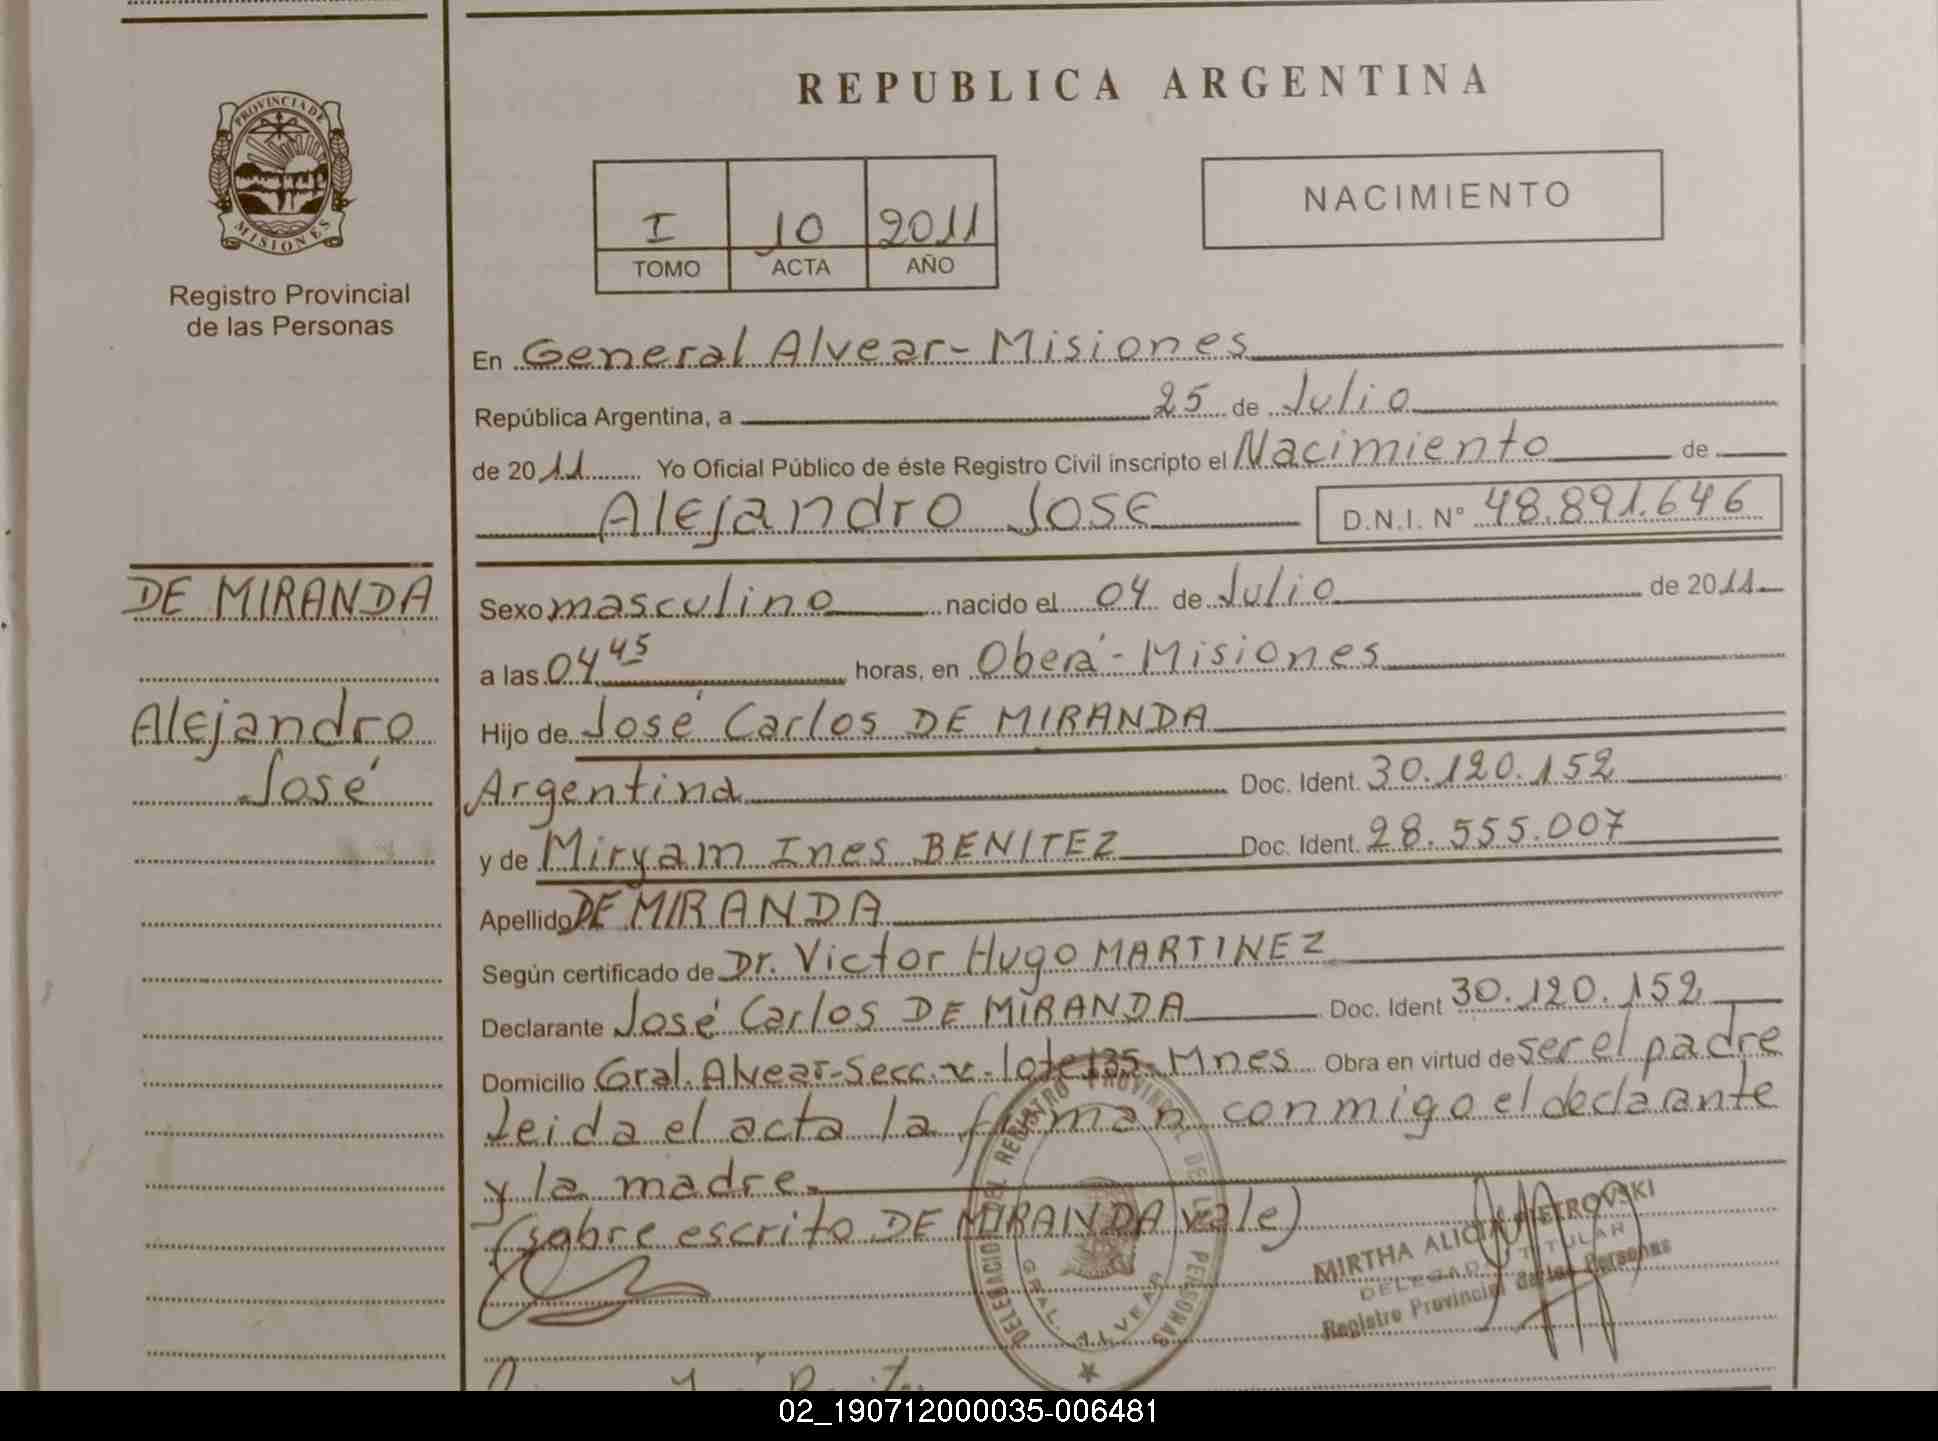 REPUBLICA ARGENTINA
PROVINCIA DE
MISIONES
Registro Provincial
de las Personas
I 10 2011
TOMO ACTA AÑO
NACIMIENTO
En General Alvear - Misiones
República Argentina, a 25 de Julio
de 2011 Yo Oficial Público de éste Registro Civil inscripto el Nacimiento de
Alejandro José D.N.I. Nº 48.891.646
DE MIRANDA
Alejandro
José
Sexo masculino nacido el 04 de Julio de 2011
a las 04 45 horas, en Oberá - Misiones
Hijo de José Carlos DE MIRANDA
Argentina Doc. Ident. 30.120.152
y de Miryam Ines BENITEZ Doc. Ident. 28.555.007
Apellido DE MIRANDA
Según certificado de Dr. Victor Hugo MARTINEZ
Declarante José Carlos DE MIRANDA Doc. Ident 30.120.152
Domicilio Gral. Alvear-Secc. v. lote 135- Mnes Obra en virtud de ser el padre
leida el acta la firman conmigo el declarante
y la madre.
(sobre escrito DE MIRANDA vale)
DELEGACION DEL REGISTRO PROVINCIAL DE LAS PERSONAS
GRAL. ALVEAR
MIRTHA ALICIA PIETROVSKI
DELEGADA TITULAR
Registro Provincial de las Personas
02_190712000035-006481